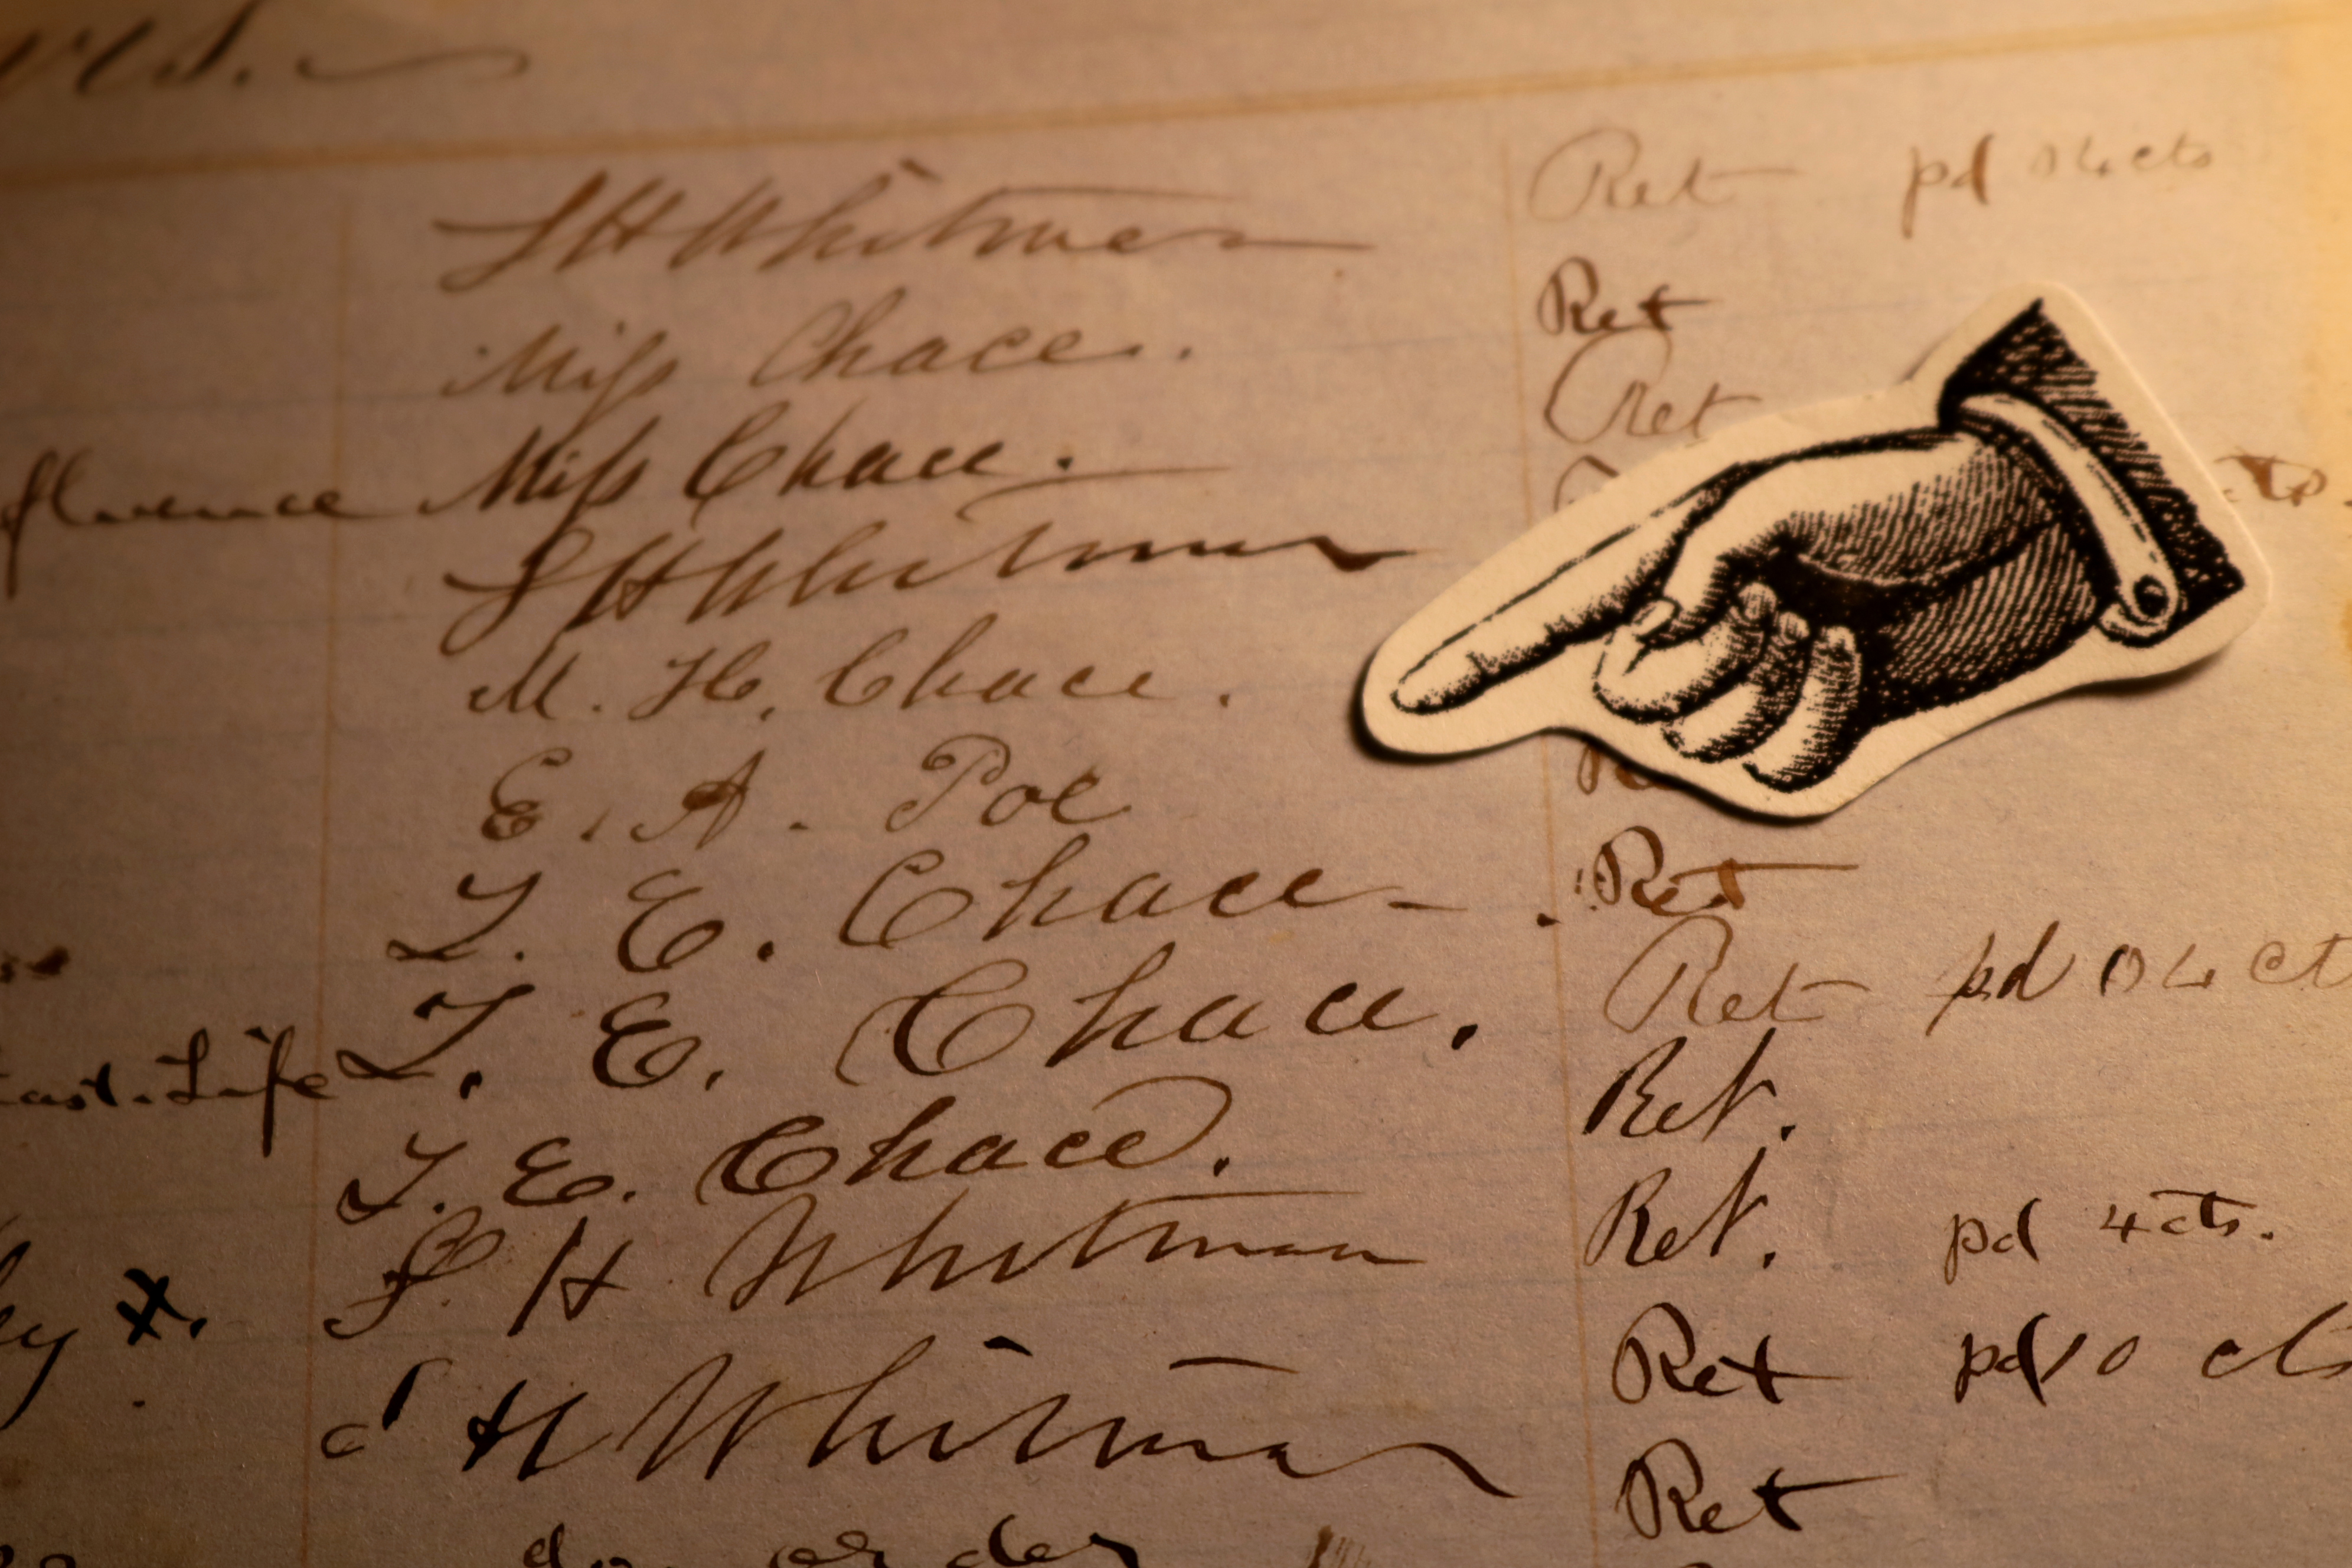 S H Whitman Ret pd 04 cts
Miss Chace. Ret
fluence Miss Chace. Ret
S H Whitman cts
M. H. Chace.
E. A. Poe
T. E. Chace Ret
T. E. Chace. Ret pd 04 ct
ast. Life T. E. Chace. Ret.
S H Whitman Ret. pd 4 cts.
S H Whitman Ret pd 10 cts
do order Ret